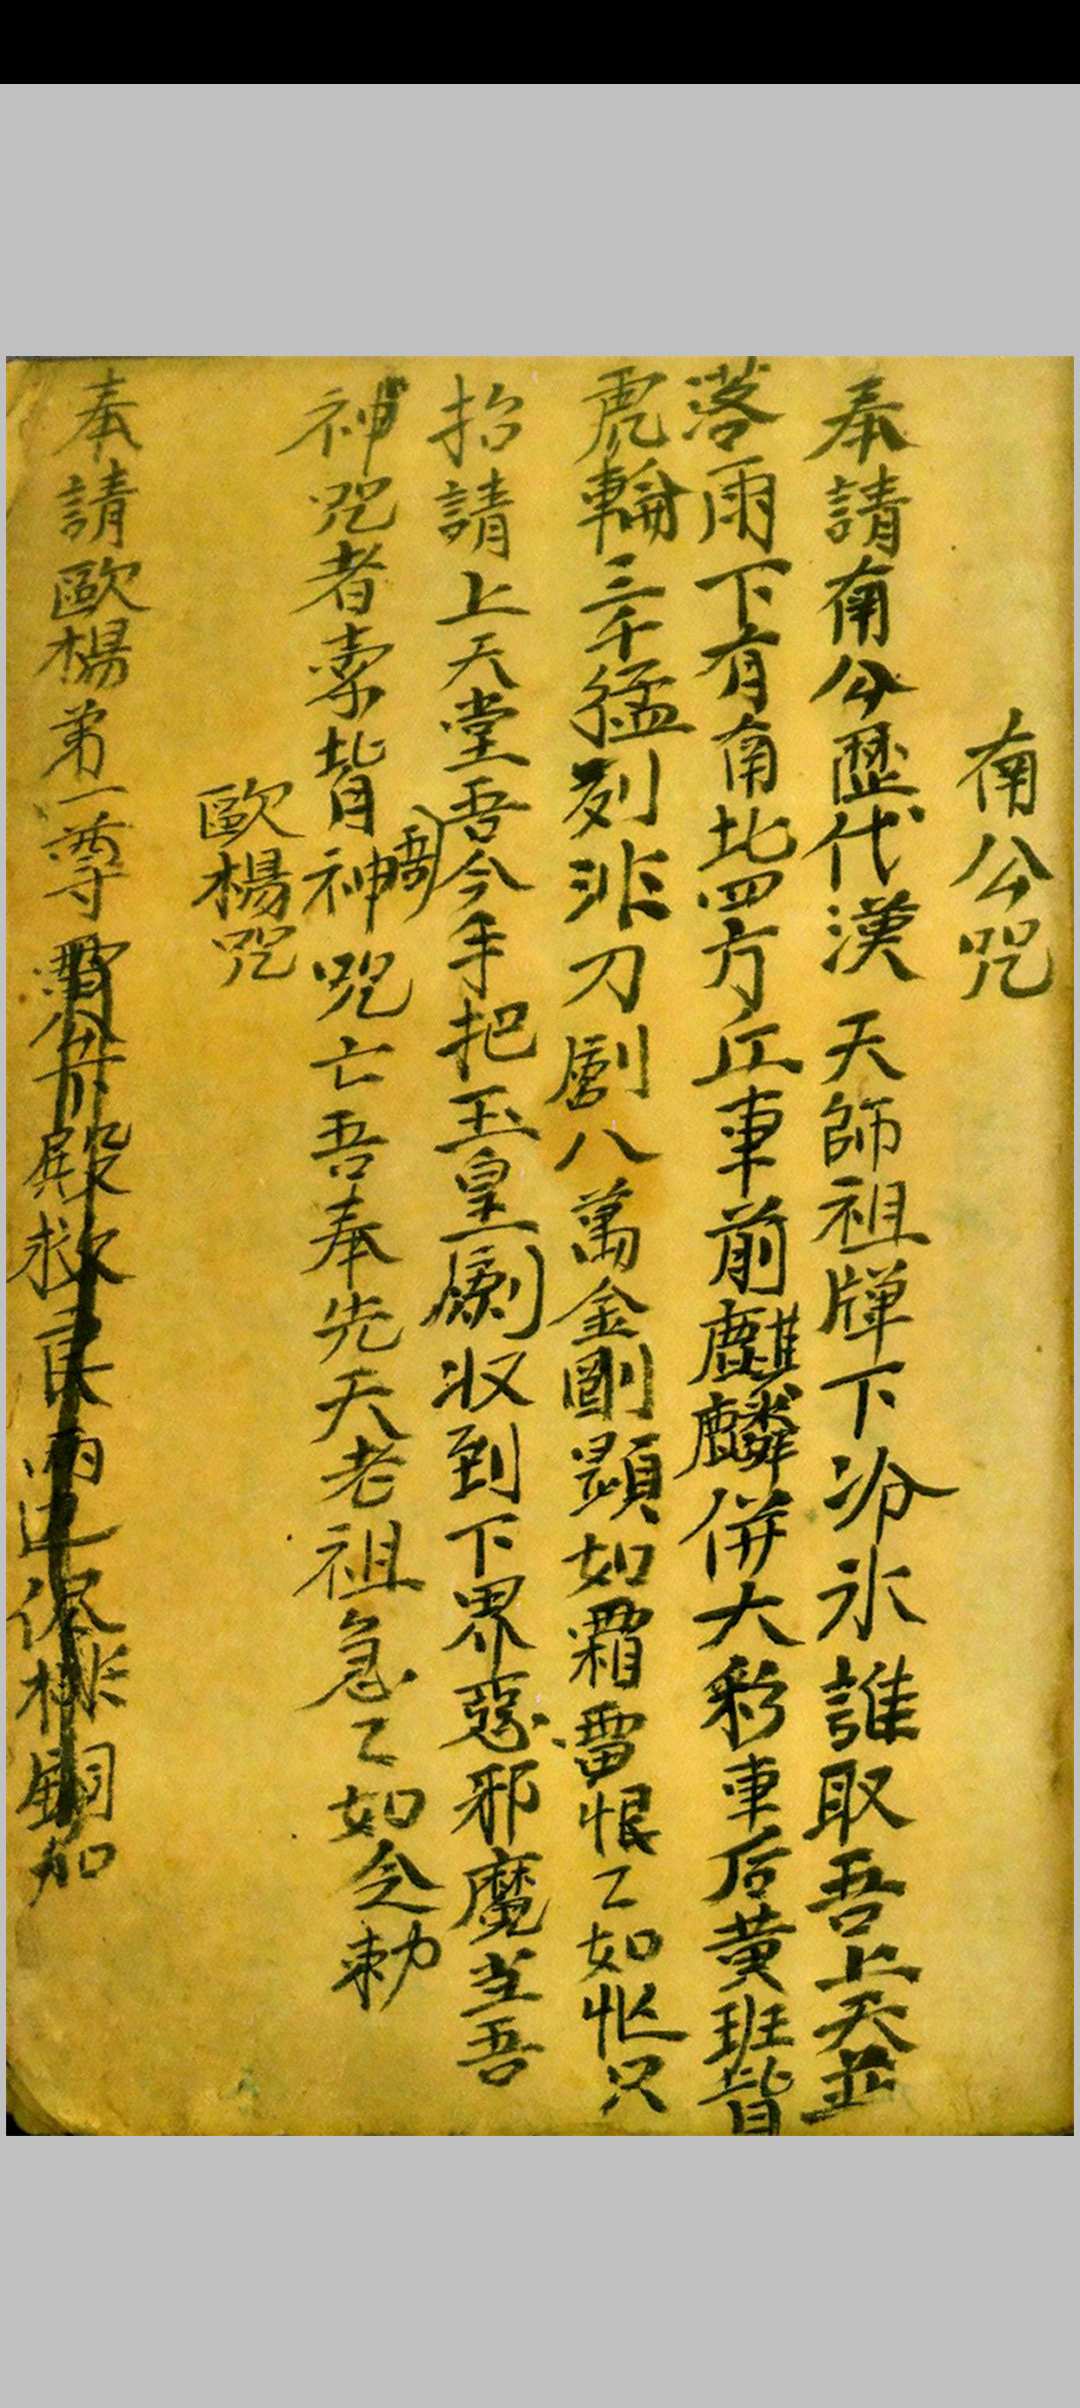 南公咒
奉請南公歷代漢天師祖牌下汾氷誰取吾上天並
落雨下有南北四方丘車前麒麟併大彩車后黄班皆
虎輪三千猛列非刀劊八萬金剛顕如霜雷恨〻如怇只
抬請上天堂吾今手把玉皇劂收到下界惡邪魔並吾
神咒者素背神咒亡吾奉先天老祖急〻如令勅
歐楊咒
奉請歐楊弟一尊 殿救 兩边